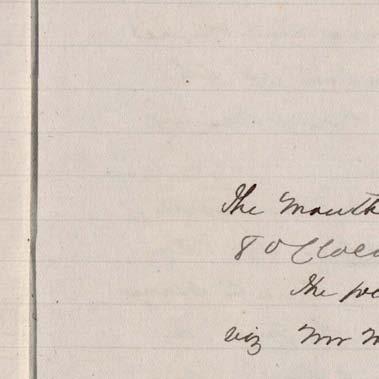 The Month
8 O Cloc
The
viz Mr